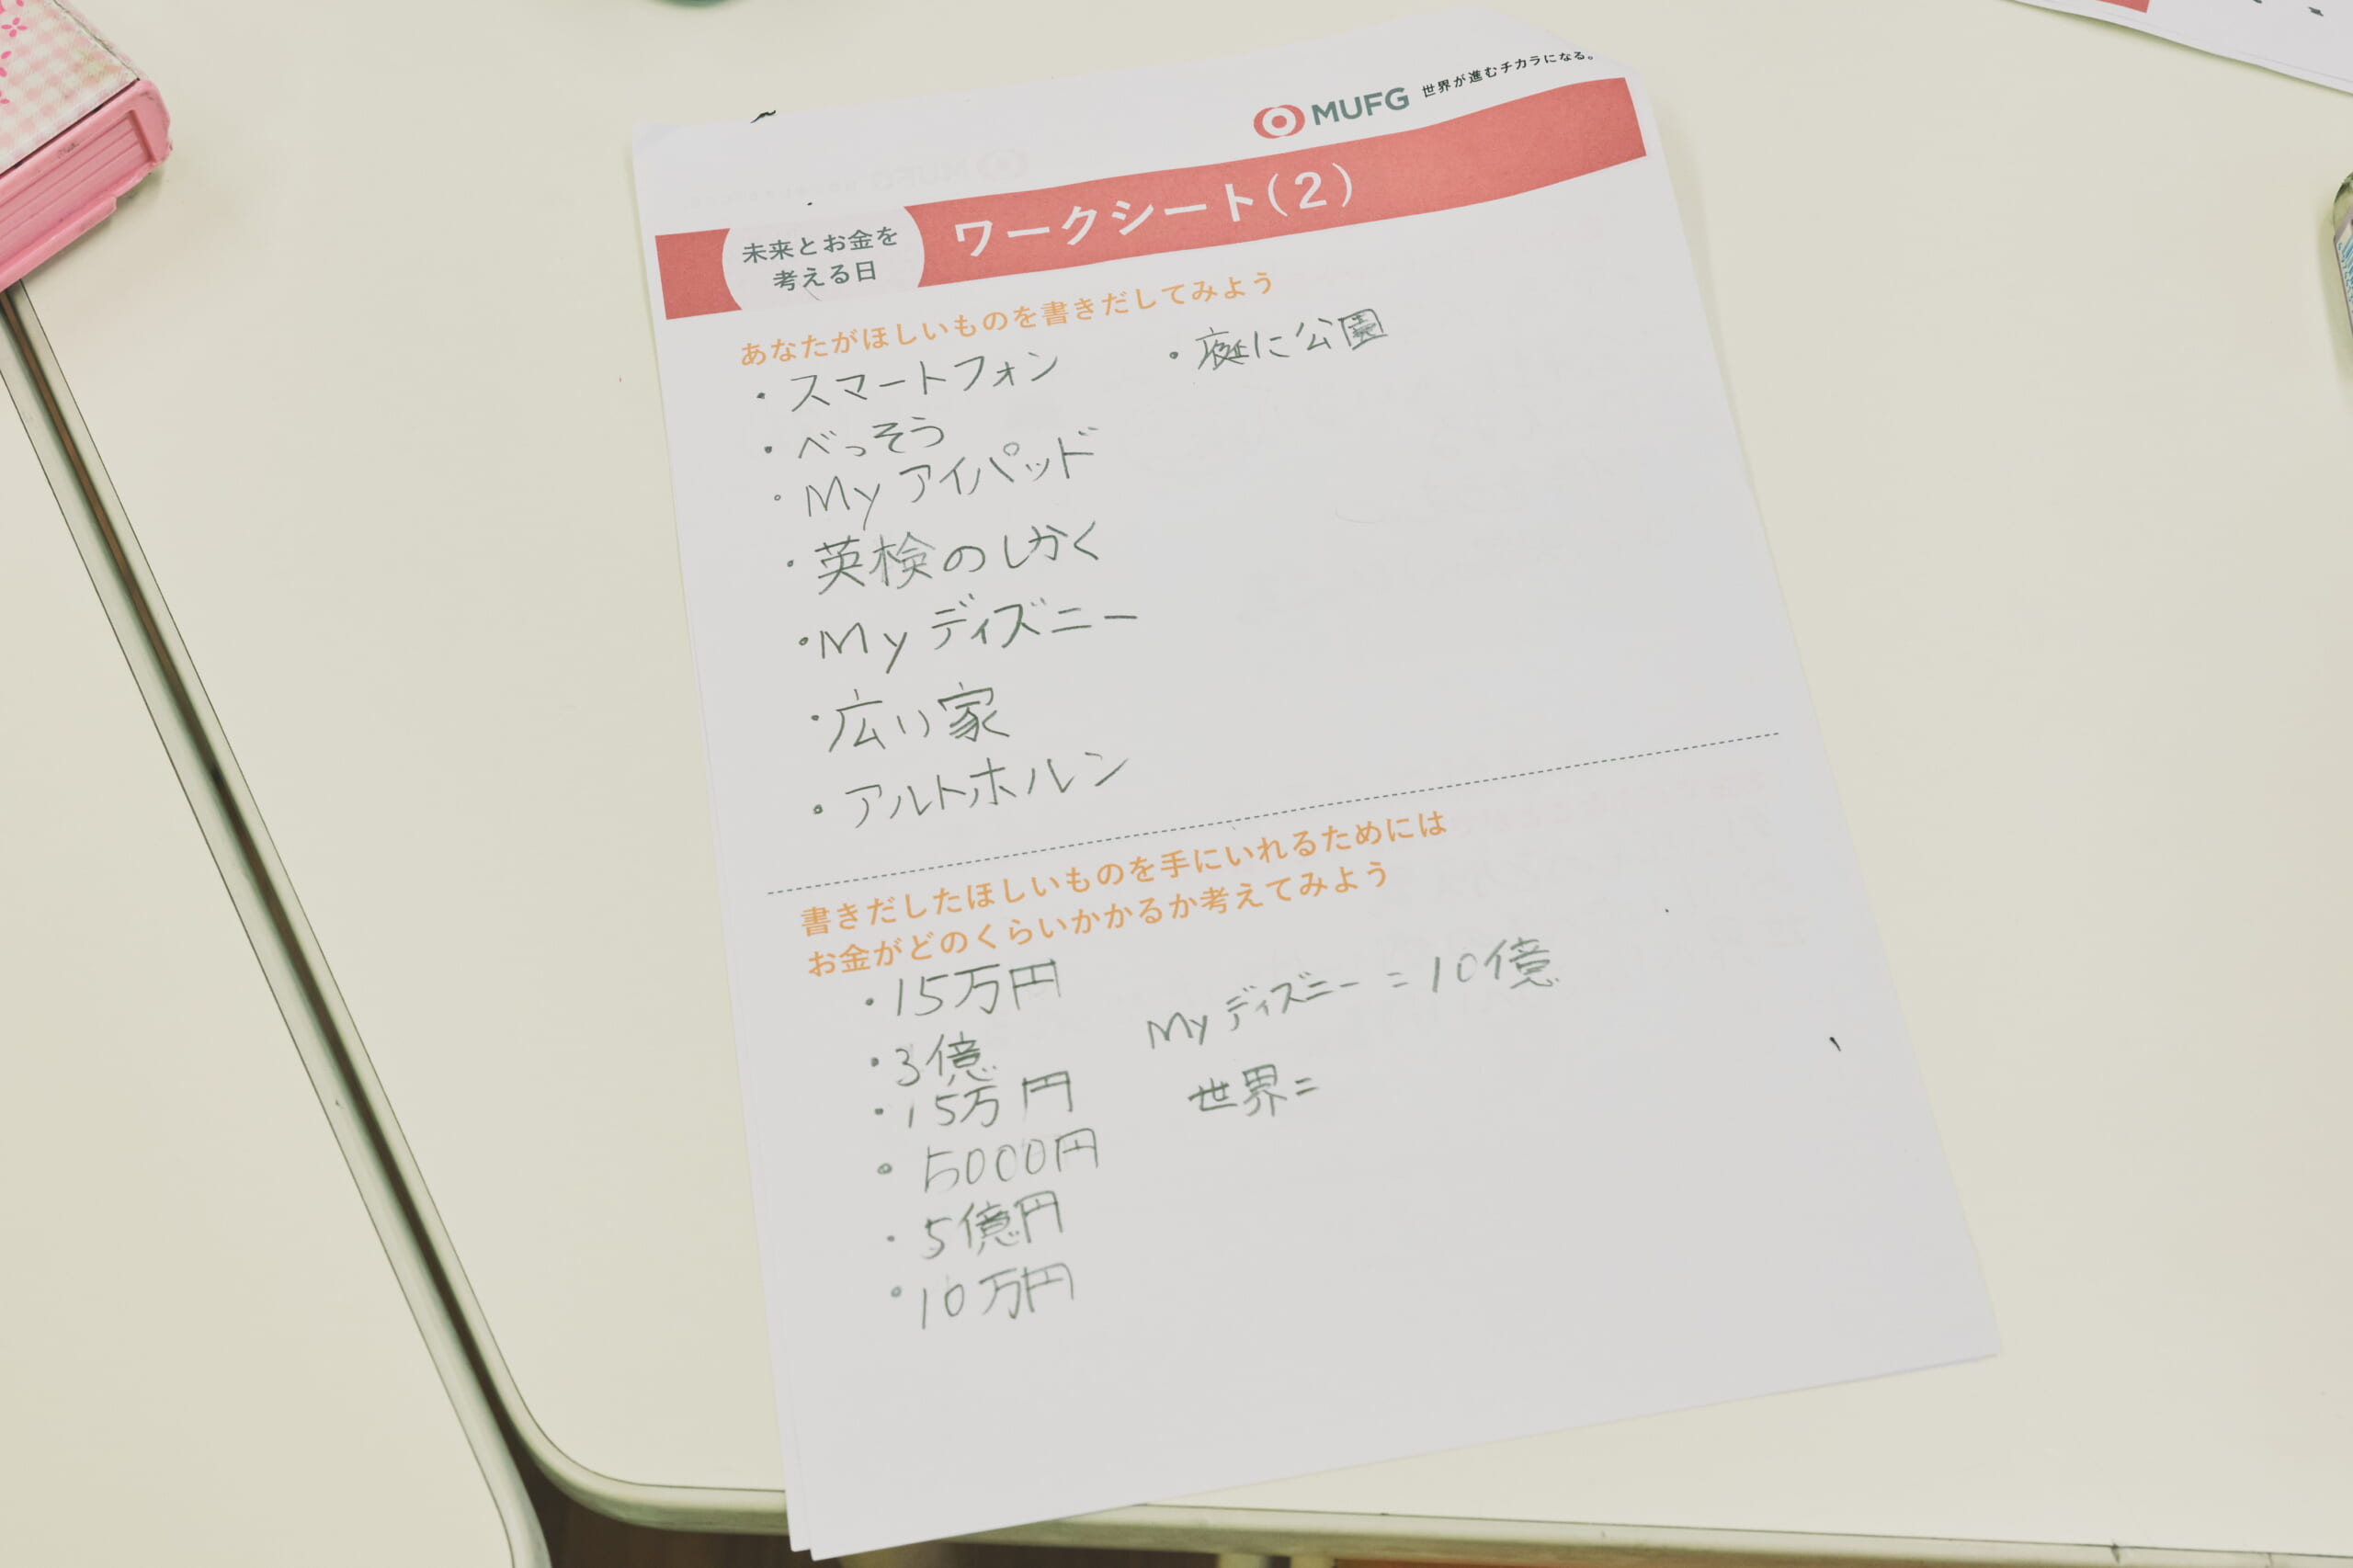 MUFG 世界が進むチカラになる。
未来とお金を
考える日
ワークシート(2)
あなたがほしいものを書きだしてみよう
・スマートフォン
・べっそう
・Myアイパッド
・英検のしかく
・Myディズニー
・広い家
・アルトホルン
・庭に公園
書きだしたほしいものを手にいれるためには
お金がどのくらいかかるか考えてみよう
・15万円
・3億
・15万円
・5000円
・5億円
・10万円
Myディズニー=10億
世界=